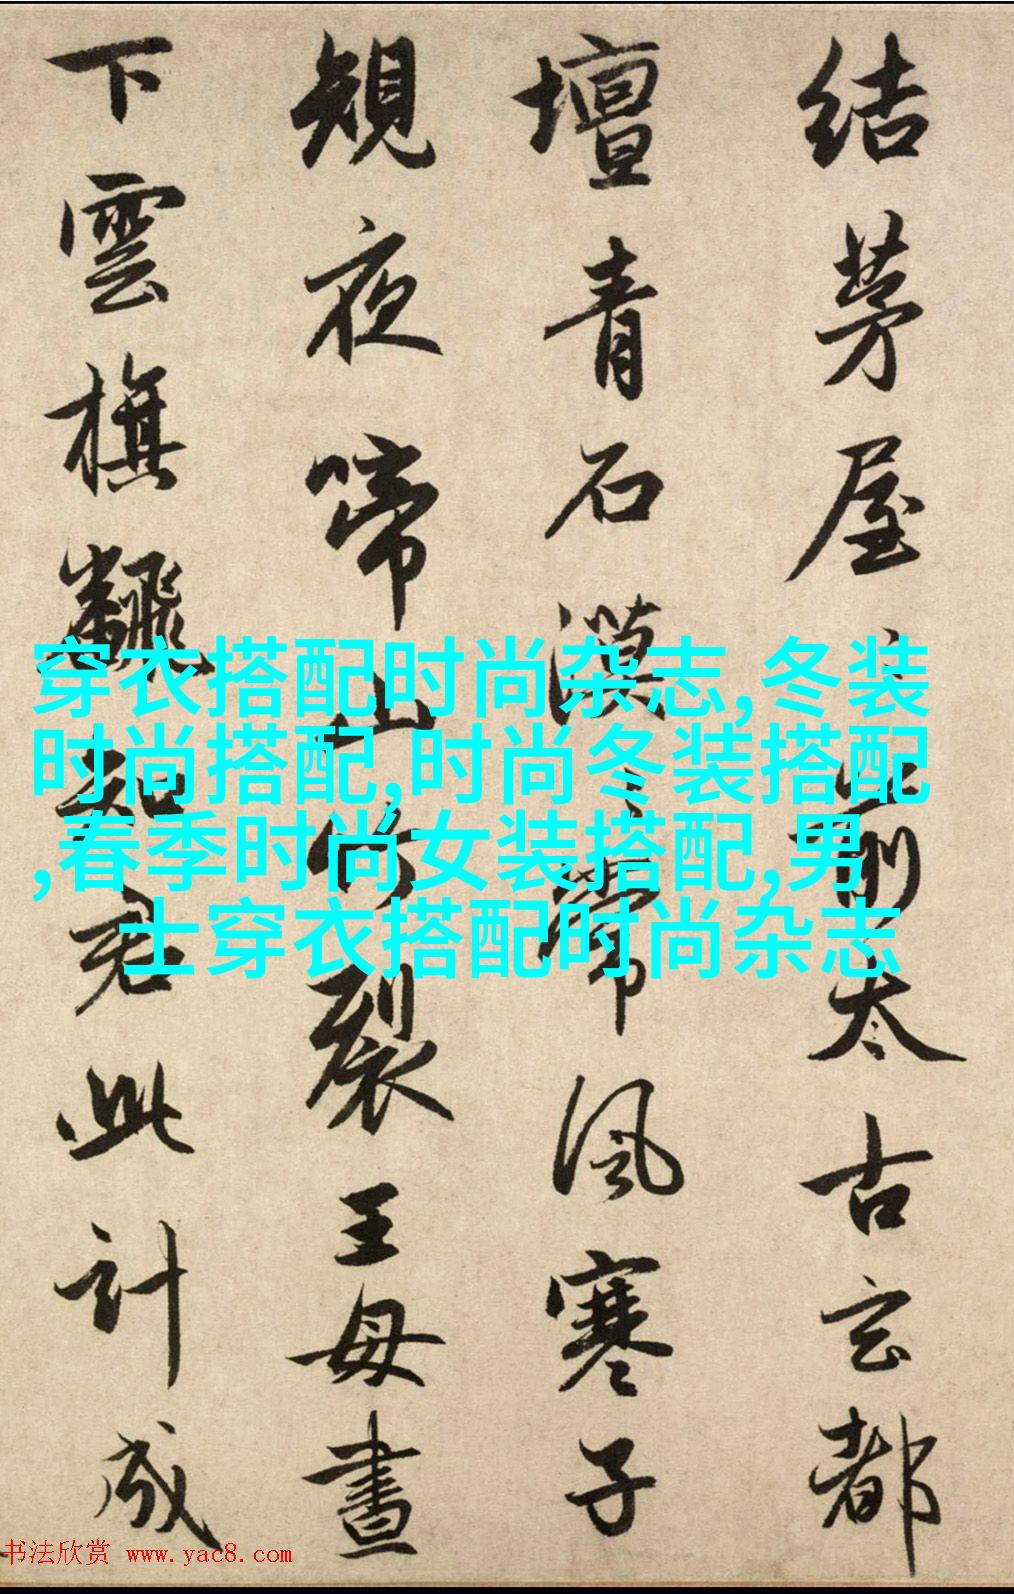 結茅屋〻前太古玄都
壇青石漠〻常風寒子
規夜啼山竹裂王母晝
下雲旗飜知君此計成
穿衣搭配时尚杂志,冬装
时尚搭配,时尚冬装搭配
,春季时尚女装搭配,男
士穿衣搭配时尚杂志
书法欣赏 www.yac8.com